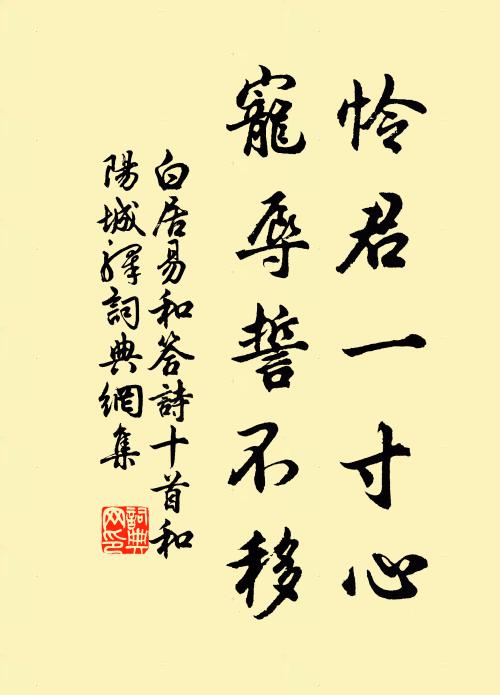 怜君一寸心
寵辱誓不移
白居易和答詩十首和
陽城驛詞典網集
詞典
网印